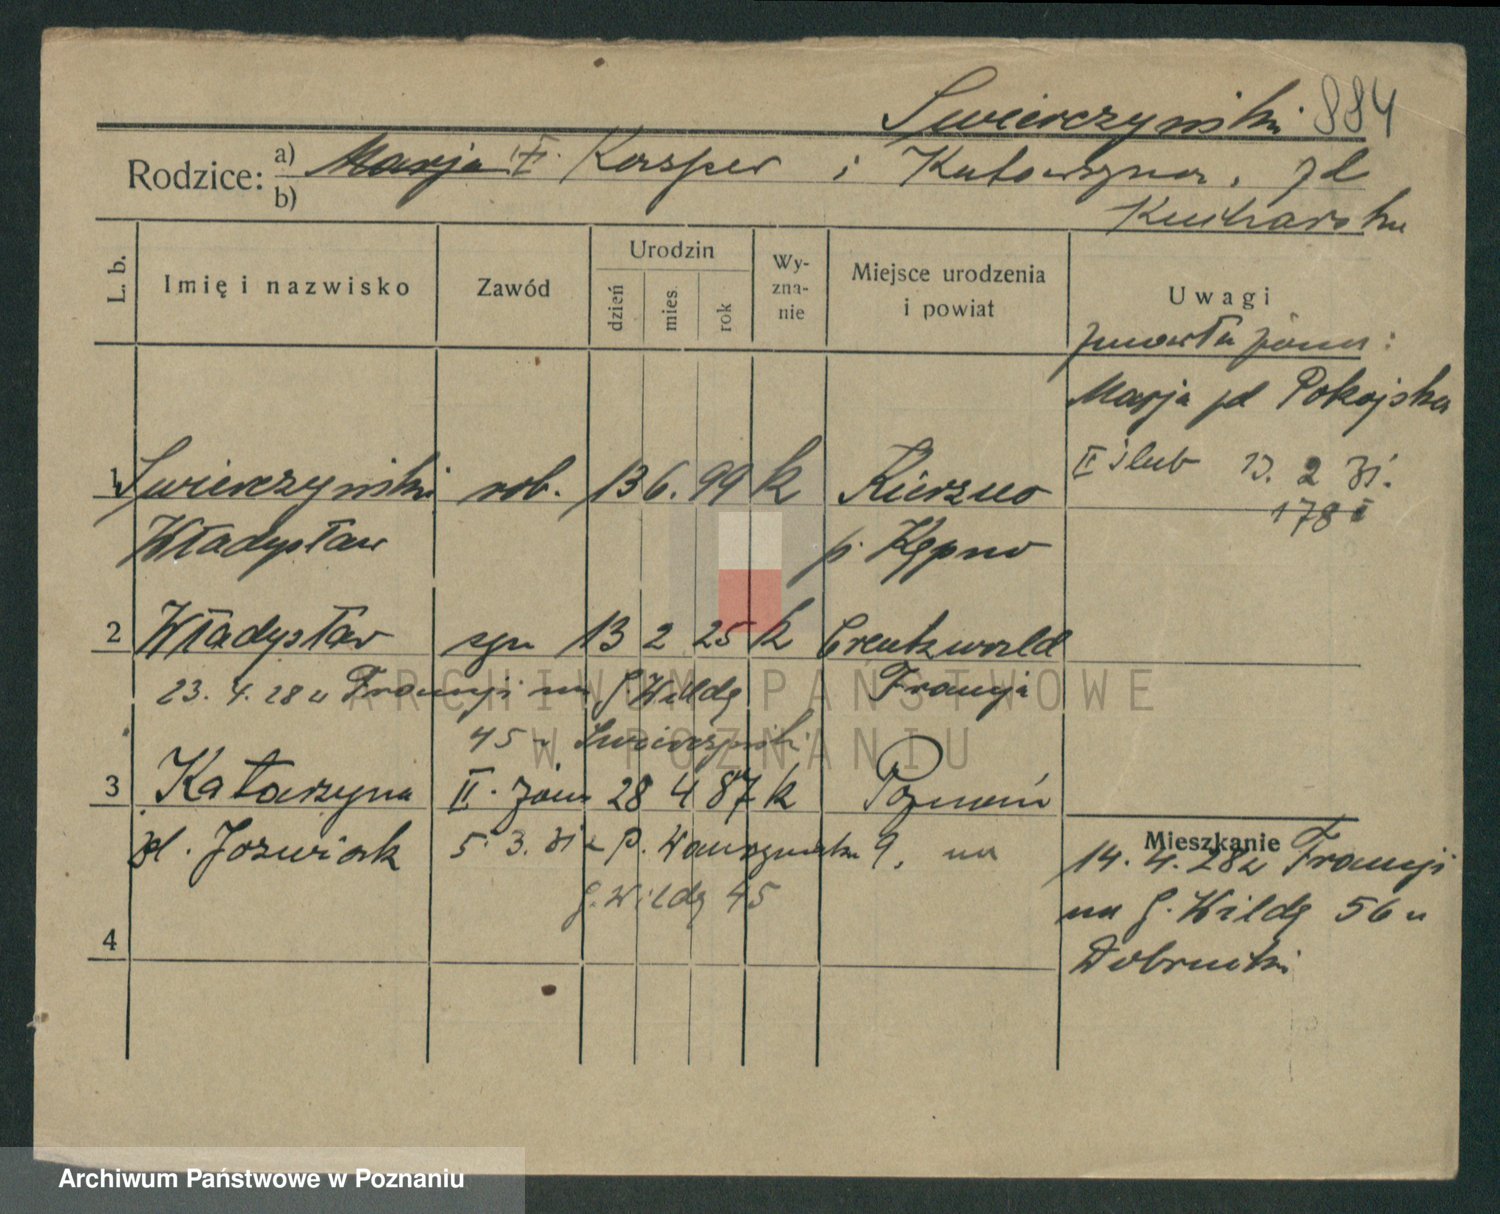 Swierczynski 884
Rodzice: a) Marja II. Kasper i Katarzyna, zd
b) Kucharska
L. b. Imię i nazwisko Zawód Urodzin dzień mies. rok Wy-zna-nie Miejsce urodzenia i powiat Uwagi
zmarła żona:
Marja zd Pokojska
II ślub 13. 2 31.
178 I
1 Swierczynski rob. 13 6. 99 k Kierzno
Władysław p. Kępno
2 Władysław syn 13 2 25 k Creutzwald
23. 4. 28 u Francji na G. Wildę Francja
45 u Swierczynski
3 Katarzyna II. żona 28 4 87 k Poznań
zd. Jozwiak 5. 3. 31 9, na
G. Wildę 45
4
Mieszkanie
14. 4. 28 u Francji
na G. Wildę 56 u
ARCHIWUM PAŃSTWOWE
W POZNANIU
Archiwum Państwowe w Poznaniu